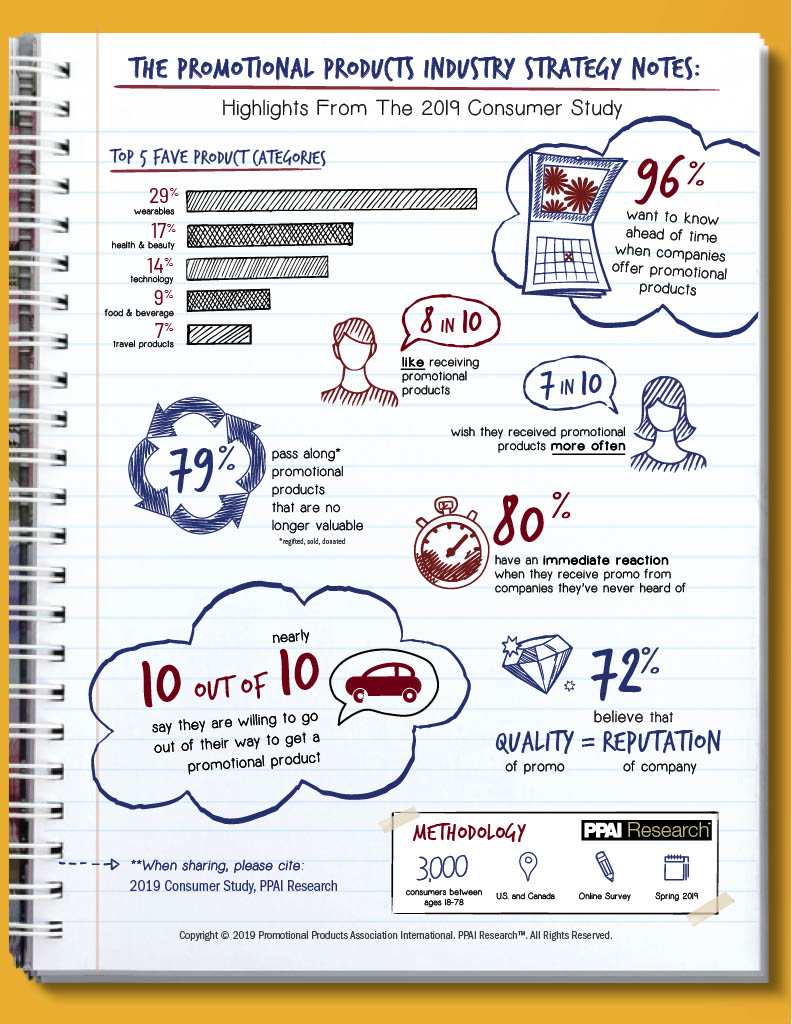 THE PROMOTIONAL PRODUCTS INDUSTRY STRATEGY NOTES:
Highlights From The 2019 Consumer Study
TOP 5 FAVE PRODUCT CATEGORIES
29%
wearables
17%
health & beauty
14%
technology
9%
food & beverage
7%
travel products
96%
want to know
ahead of time
when companies
offer promotional
products
8 IN 10
like receiving
promotional
products
7 IN 10
wish they received promotional
products more often
79%
pass along*
promotional
products
that are no
longer valuable
*regifted, sold, donated
80%
have an immediate reaction
when they receive promo from
companies they've never heard of
nearly
10 OUT OF 10
say they are willing to go
out of their way to get a
promotional product
72%
believe that
QUALITY = REPUTATION
of promo of company
METHODOLOGY
PPAI Research™
3,000
consumers between
ages 18-78
U.S. and Canada
Online Survey
Spring 2019
**When sharing, please cite:
2019 Consumer Study, PPAI Research
Copyright © 2019 Promotional Products Association International. PPAI Research™. All Rights Reserved.